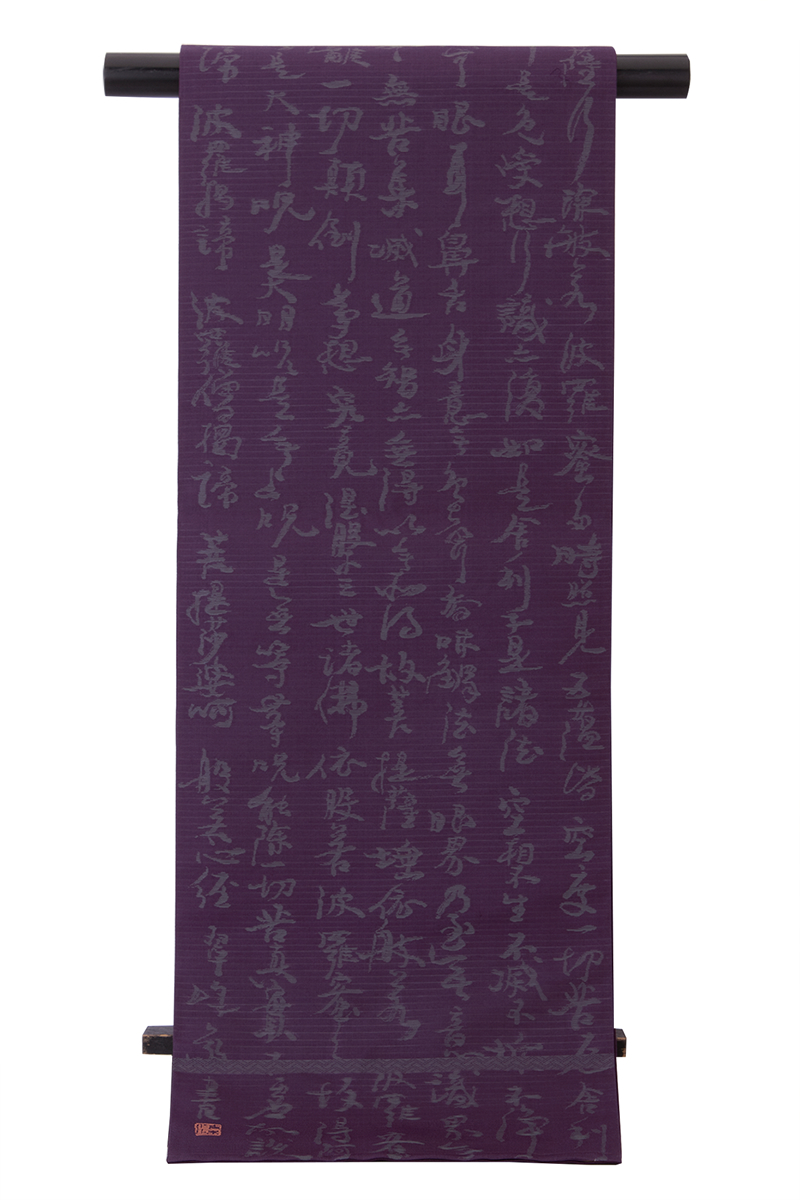 薩行深般若波羅蜜多時照見五蘊皆空度一切苦厄舍利
是色受想行識亦復如是舍利子是諸法空相不生不滅不垢不淨
眼耳鼻舌身意無色聲香味觸法無眼界乃至無意識界
無苦集滅道無智亦無得以無所得故菩提薩埵依般若波羅蜜
離一切顛倒夢想究竟涅槃三世諸佛依般若波羅蜜多故得
是大神呪是大明呪是無上呪是無等等呪能除一切苦真實不虚故說
諦 波羅揭諦 波羅僧揭諦 菩提莎婆呵 般若心經 書